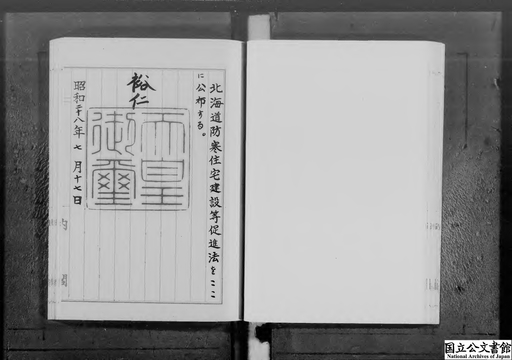 北海道防寒住宅建設等促進法をここ
に公布する。
裕仁
天皇
御璽
昭和二十八年七月十七日
内閣
国立公文書館
National Archives of Japan